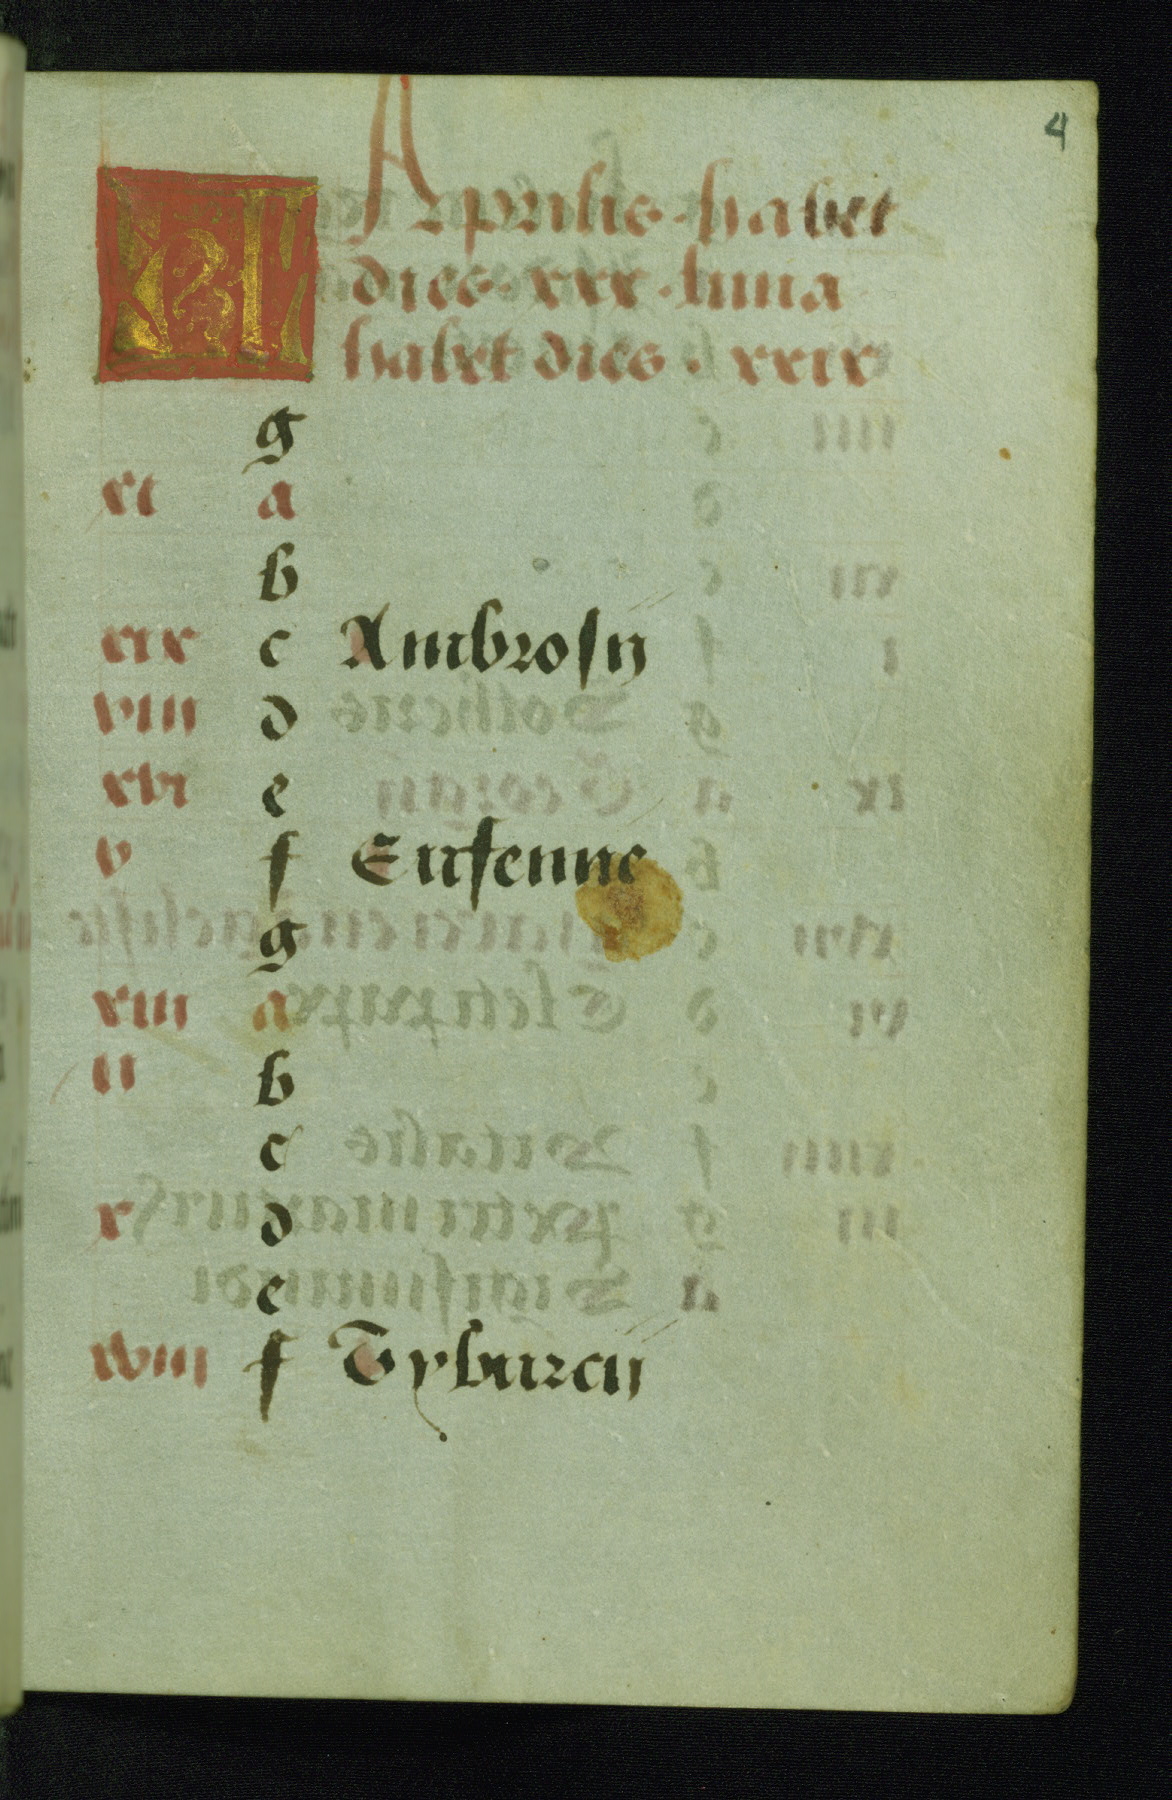 4
KL Aprilis · habet
dies · xxx · luna
habet dies · xxix
g
xi a
b
xix c Ambrosij
viii d
xvi e
v f Eufenne
g
xiii a
ii b
c
x d
e
xviii f Tyburcij